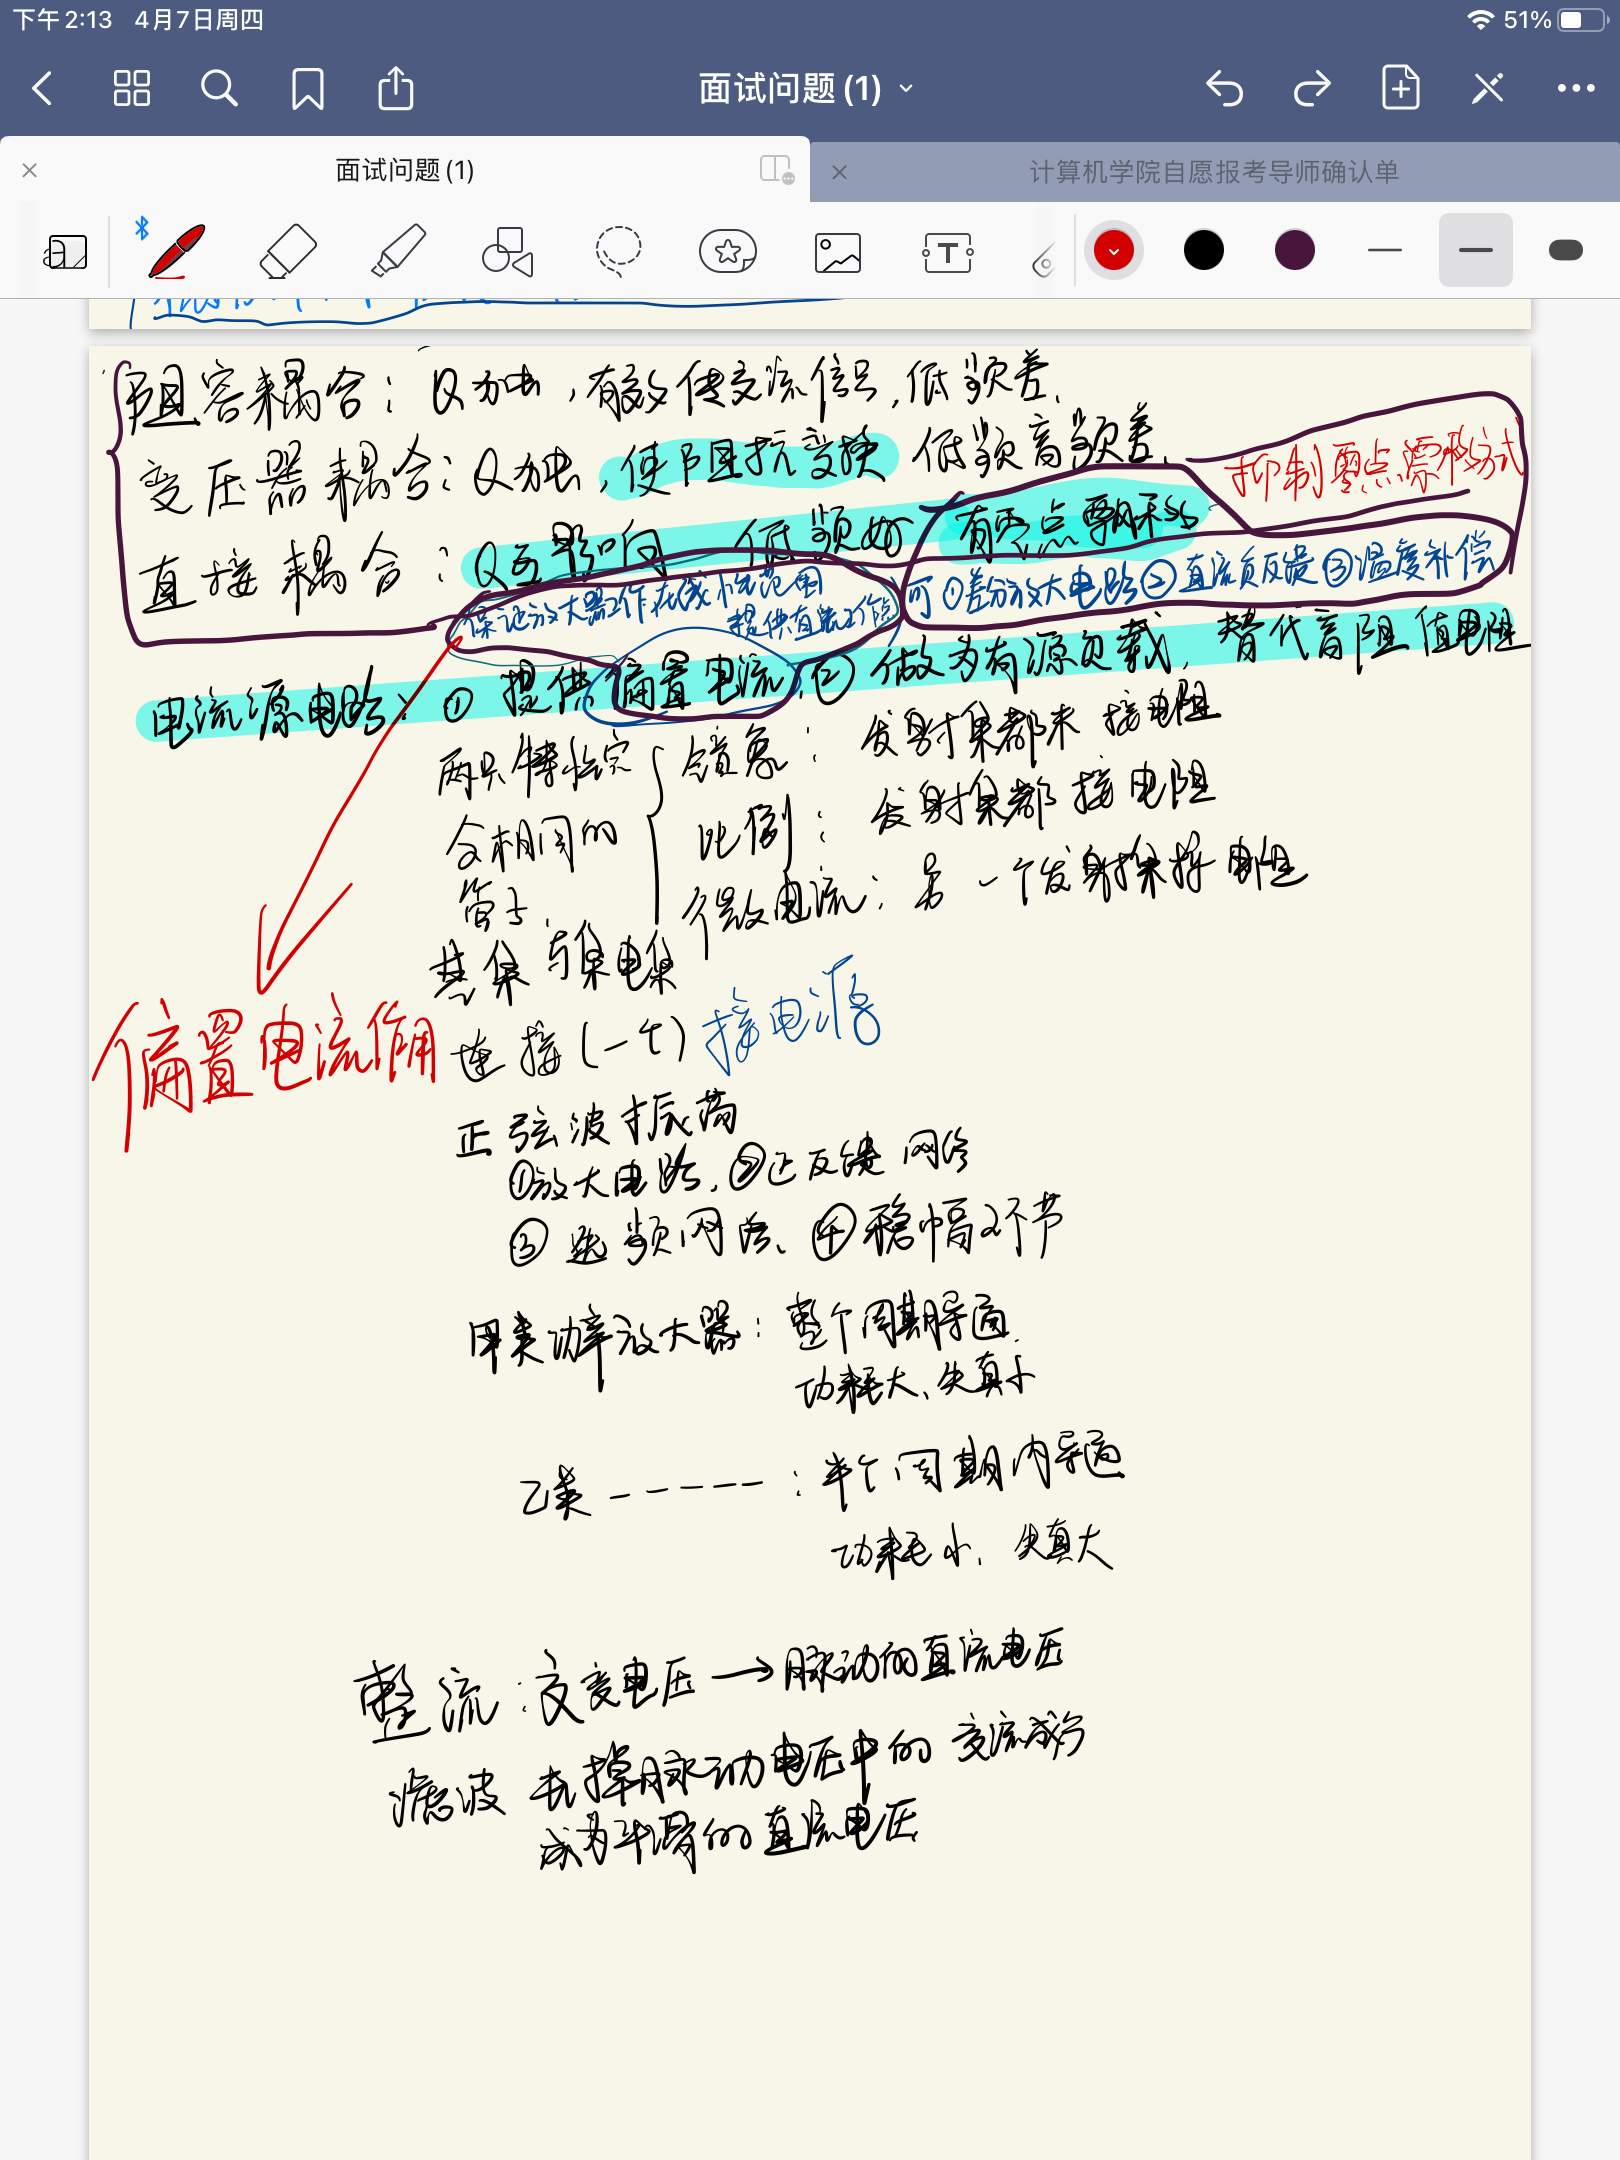 下午2:13 4月7日周四
51%
面试问题 (1)
面试问题 (1)
计算机学院自愿报考导师确认单
阻容耦合：Q独立，有效传交流信号，低频差.
变压器耦合：Q独立，使阻抗变换 低频高频差.
抑制零点漂移方式
直接耦合：Q互影响 低频好 有零点飘移
可①差分放大电路②直流负反馈③温度补偿
保证放大器工作在线性范围
提供直流工作点
电流源电路：① 提供偏置电流,② 做为有源负载，替代高阻值电阻
两只特性完
全相同的
管子
镜象：发射集都未接电阻
比例：发射集都接电阻
微电流：另一个发射集接电阻
基集与集电集
连接(一个) 接电源
偏置电流作用
正弦波振荡
①放大电路、②正反馈网络
③选频网络、④稳幅环节
甲类功率放大器：整个周期导通
功耗大、失真小
乙类-----：半个周期内导通
功耗小、失真大
整流：交变电压→脉动的直流电压
滤波 去掉脉动电压中的交流成分
成为平滑的直流电压